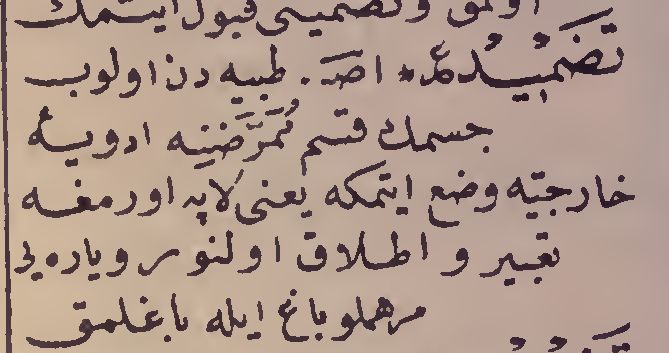 اولمق و تضمينى قبول ايتمك
تَضْمِيْدُ ع* اصـ. طبيه دن اولوب
جسمك قسم مُمَرَّضَنِه ادويهٔ
خارجيّه وضع ايتمكه يعنى لاپه اورمغه
تعبير و اطلاق اولنور و ياره يى
مرهملو باغ ايله باغلمق